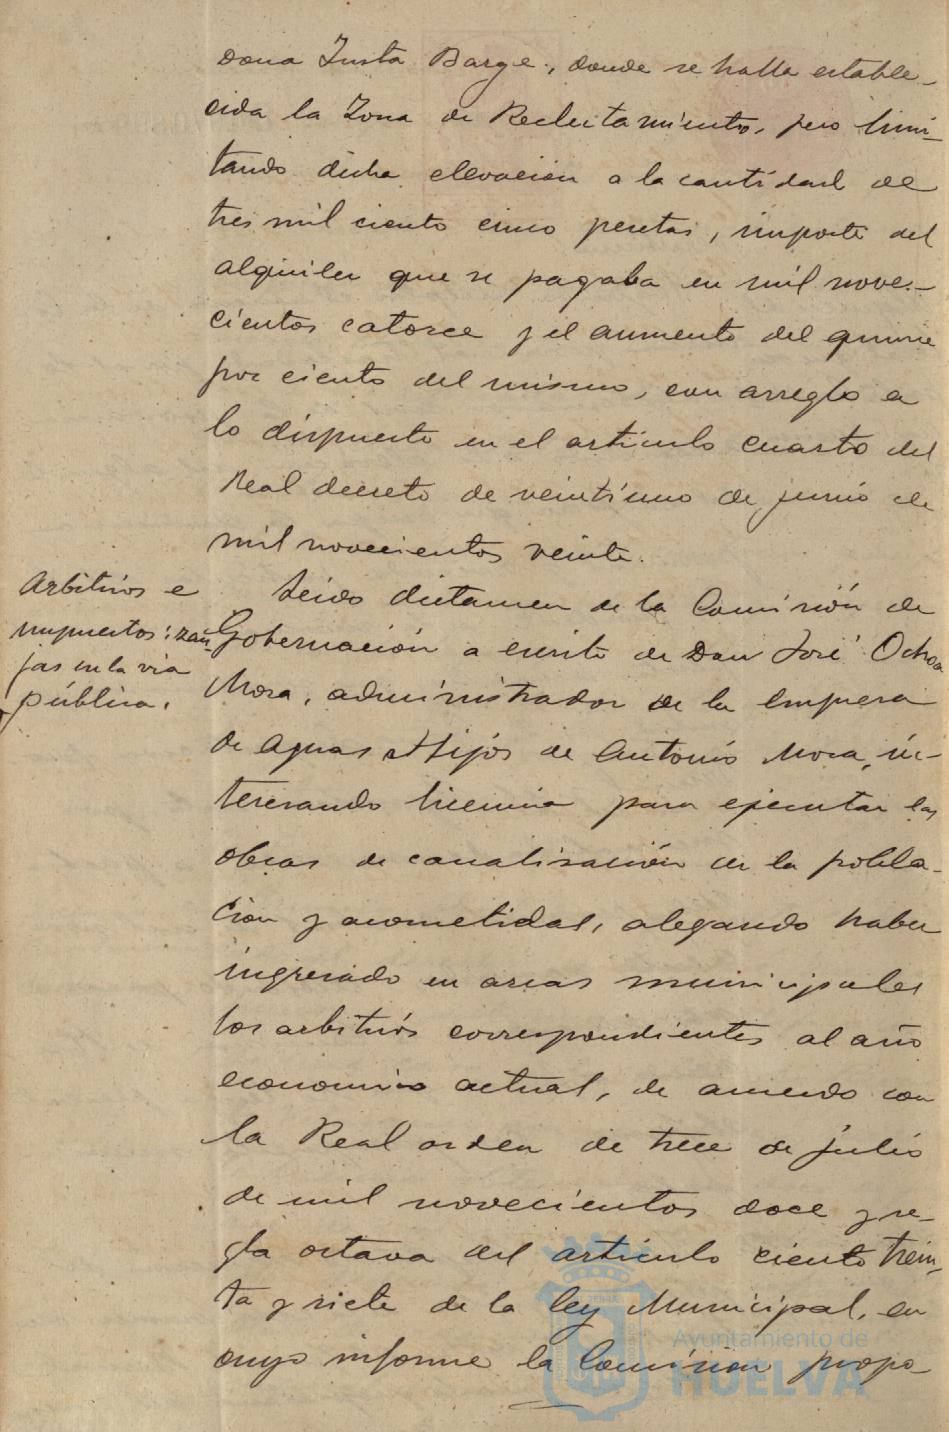 Dona Justa Barge, donde se halla estable-
cida la Zona de Reclutamiento, pero limi-
tando dicha elevación a la cantidad de
tres mil ciento cinco pesetas, importe del
alquiler que se pagaba en mil nove-
cientos catorce y el aumento del quince
por ciento del mismo, con arreglo a
lo dispuesto en el artículo cuarto del
Real decreto de veintiuno de junio de
mil novecientos veinte.
Arbitrios e
impuestos: zan-
jas en la via
pública.
Leido dictamen de la Comisión de
Gobernación a escrito de Don José Ochoa
Mora, administrador de la Empresa
de Aguas Hijos de Antonio Mora, in-
teresando licencia para ejecutar las
obras de canalización de la pobla-
ción y acometidas, alegando haber
ingresado en arcas municipales
los arbitrios correspondientes al año
economico actual, de acuerdo con
la Real orden de trece de julio
de mil novecientos doce y re-
gla octava del artículo ciento trein-
ta y siete de la ley Municipal, en
cuyo informe la Comision propo-
Ayuntamiento de
HUELVA